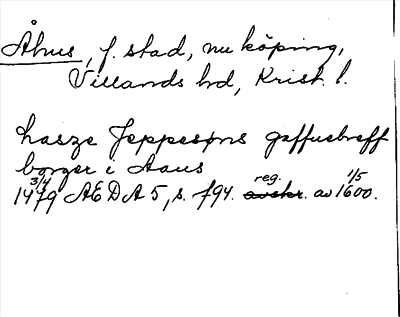 Åhus, f. stad, nu köping,
Villands hd, Krist. l.
hasze Jeppesøns gaffuebreff
borger i Aaus
3/4 1479 AEDA 5, s. f94. reg. avskr. av 1/5 1600.